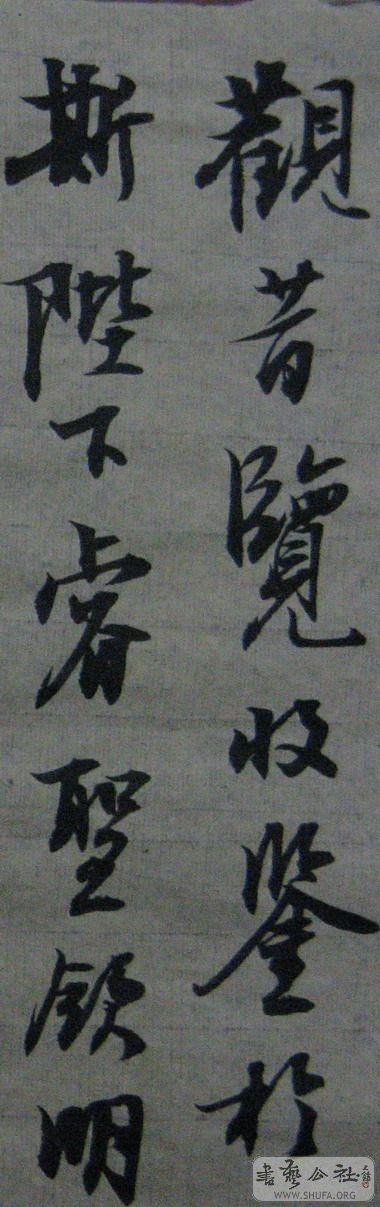 觀昔覽收鑒於
斯陛下睿聖欽明
書藝公社
WWW.SHUFA.ORG